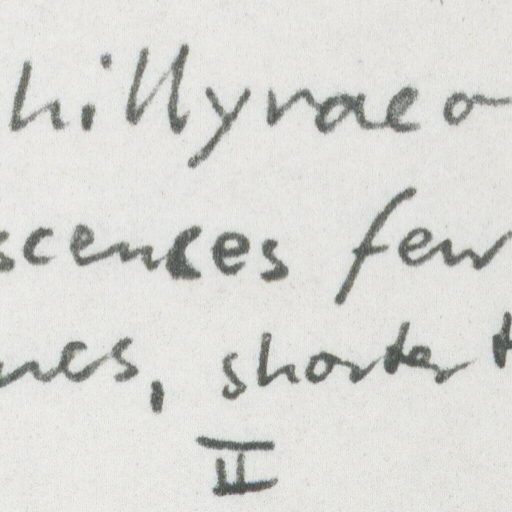 hillyraeo
scences few
nes, shorter t
II